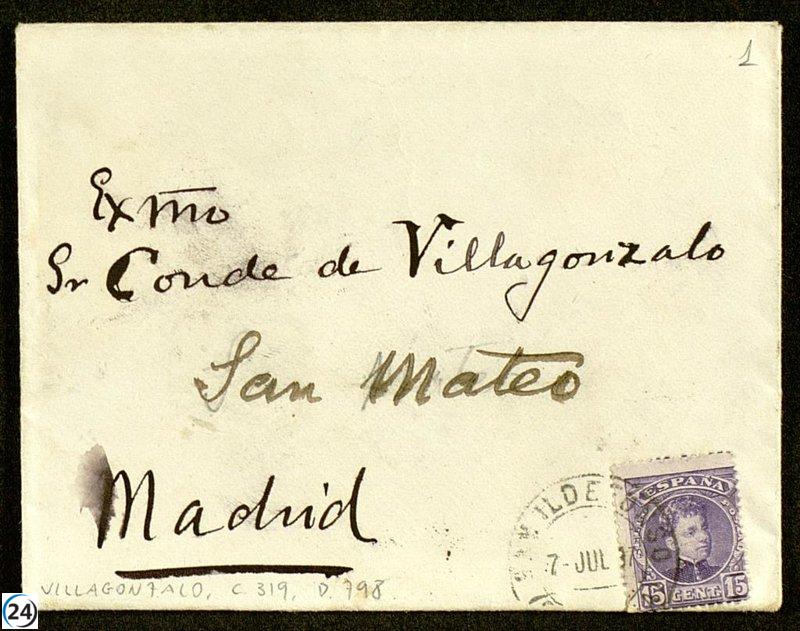 1
Exmo
Sr Conde de Villagonzalo
San Mateo
Madrid
ILDE
7-JUL
ESPAÑA
15 CENT 15
VILLAGONZALO, C 319, D. 798
24